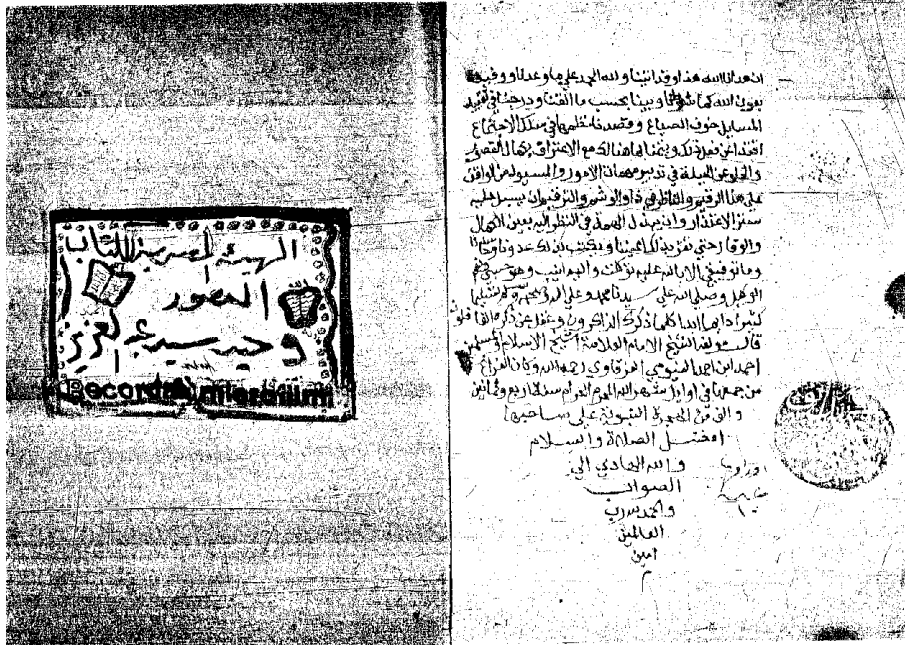 الهيئة المصرية للكتاب
المصور
وحيد سيد عبد العزيز
Recordak microfilm
ان هدانا الله هذا وقد اتينا ولله الحمد علي ما وعدنا ووفينا
بعون الله كما شرطنا وبينا بحسب ما الفنا ودرجنا في تقييد
المسايل خوف الضياع وقصدنا نظمها في سلك الاجتماع
مع الاعتراف بكمال القصور
والخلو عن الحيلة في تدبير مهمات الامور والمسيول من الواقف
علي هذا الرقيم والناظر في ان يسبل عليه
ستر الاعتذار وان يبذل الهمة في النظر اليه بعين الكمال
والوقار حتي
وما توفيقي الا بالله عليه توكلت واليه انيب وهو حسبي ونعم
الوكيل وصلي الله علي سيدنا محمد وعلي اله وصحبه وسلم تسليما
كثيرا دايما ابدا كلما ذكرك الذاكرون وغفل عن ذكره الغافلون
قال مولفه الشيخ الامام العلامة شيخ الاسلام والمسلمين
احمد ابن احمد الفيومي الغرقاوي رحمه الله وكان الفراغ
من جمعها في اوايل شهر الله المحرم الحرام سنة اربع وثمانين
والف من الهجرة النبوية علي صاحبها
افضل الصلاة والسلام
والله الهادي الي
الصواب
والحمد لله رب
العالمين
امين
م
اوراقها